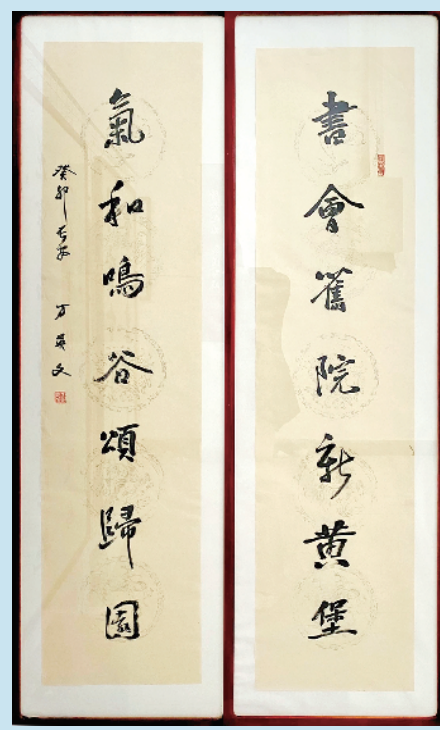 書會舊院新黃堡
氣和鳴谷頌歸園
癸卯長安
方英文